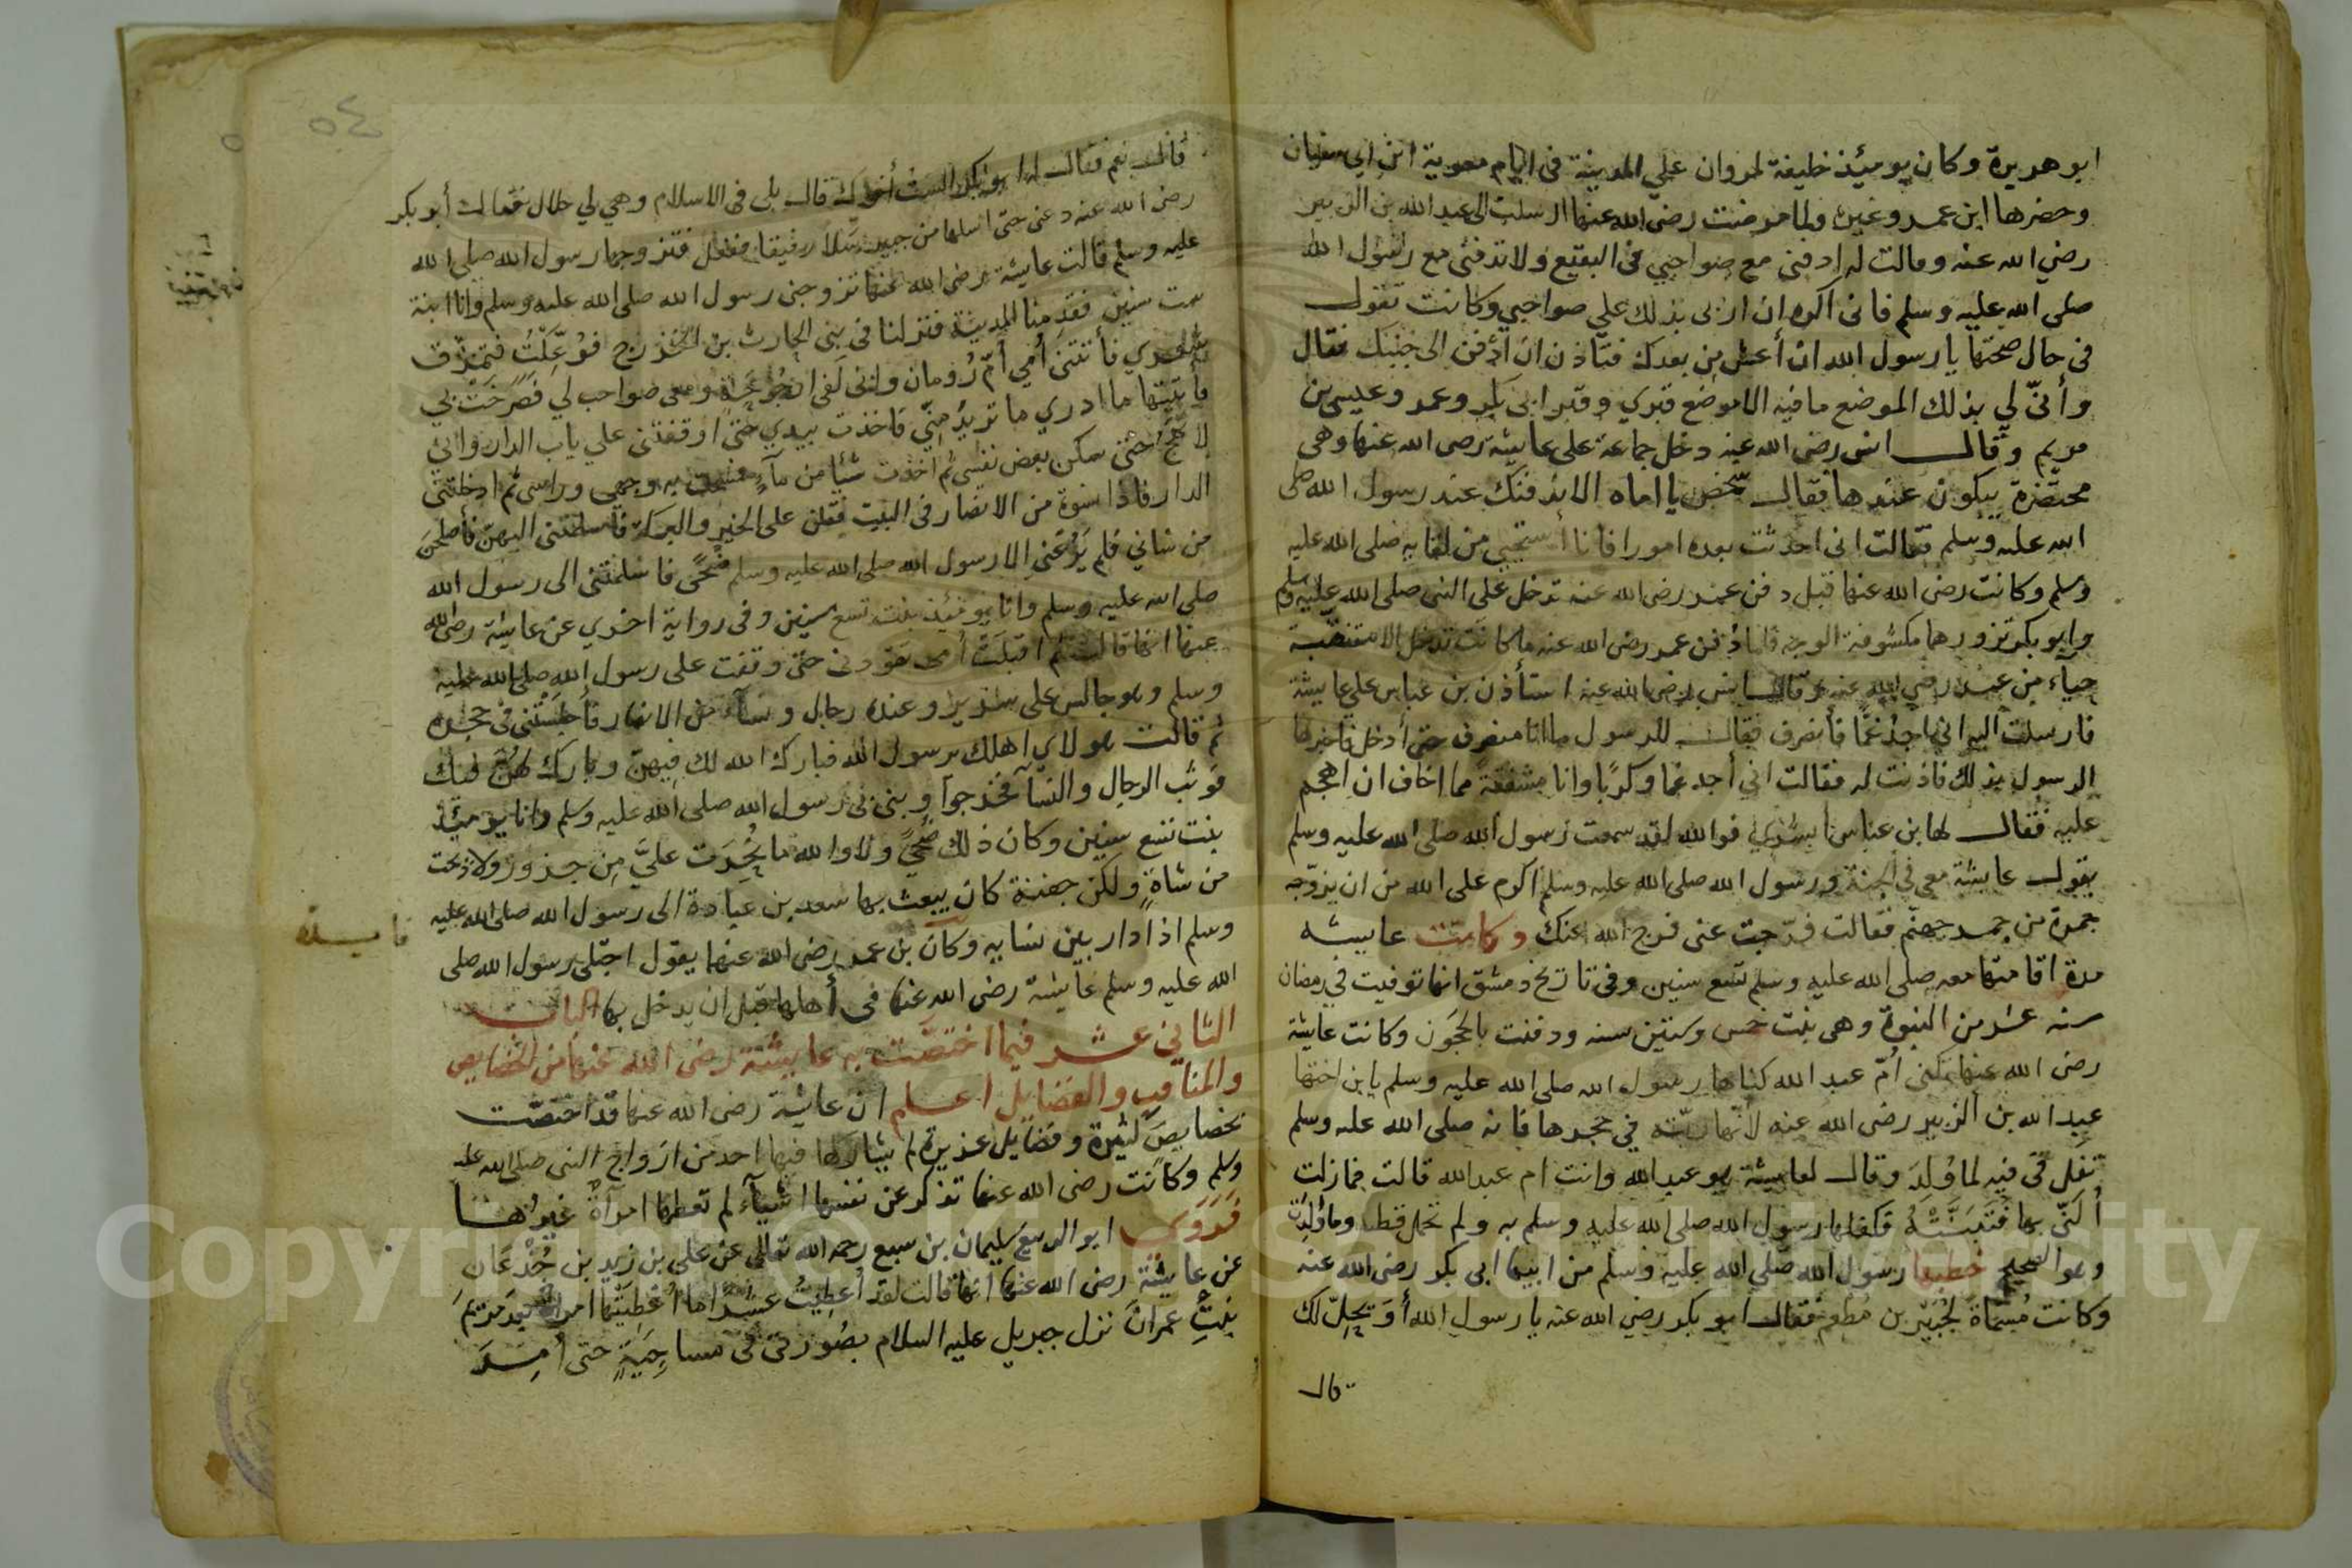 ابو هريرة وكان يوميئذ خليفة لمروان علي المدينة في ايام معوية ابن ابي سفيان
وحضرها ابن عمر وغيره ولما مرضت رضي الله عنها ارسلت الى عبد الله بن الزبير
رضي الله عنه وقالت له ادفني مع صواحبي في البقيع ولا تدفني مع رسول الله
صلى الله عليه وسلم فاني اكره ان ازبى بذلك علي صواحبي وكانت تقول
في حال صحتها يا رسول الله ان أعش من بعدك فتأذن ان أدفن الى جنبك فقال
وأنّى لي بذلك الموضع ما فيه الا موضع قبري وقبر ابي بكر وعمر وعيسى بن
مريم وقال انس رضي الله عنه دخل جماعة على عايشة رضي الله عنها وهي
محتضرة يبكون عندها فقال شخص يا اماه الا ندفنك عند رسول الله صلى
الله عليه وسلم فقالت اني احدثت بعده امورا فانا أستحيي من لقايه صلى الله عليه
وسلم وكانت رضي الله عنها قبل دفن عمر رضي الله عنه تدخل على النبي صلى الله عليه وسلم
وابو بكر تزورهما مكشوفة الوجه فلما دُفن عمر رضي الله عنه ما كانت تدخل الا متنقبة
حياء من عمر رضي الله عنه وقال انس رضي الله عنه استأذن بن عباس علي عايشة
فارسلت اليه اني اجد غمّا فأنصرف فقال للرسول ما انا منصرف حتى أدخل فاخبرها
الرسول بذلك فاذنت له فقالت اني أجد غما وكربًا وانا مشفقة مما اخاف ان اهجم
عليه فقال لها بن عباس أبشري فوالله لقد سمعت رسول الله صلى الله عليه وسلم
يقول عايشة معي في الجنة ورسول الله صلى الله عليه وسلم اكرم على الله من ان يزوّجه
جمرة من جمر جهنم فقالت فرّجت عني فرج الله عنك وكانت عايشه
مدة اقامتها معه صلى الله عليه وسلم تسع سنين وفي تاريخ دمشق انها توفيت في رمضان
سنه عشر من النبوة وهي بنت خمس وستين سنه ودفنت بالحجون وكانت عايشة
رضي الله عنها تكنى أمّ عبد الله كناها رسول الله صلى الله عليه وسلم يا بن اختها
عبد الله بن الزبير رضي الله عنه لانها ربّته في حجرها فانه صلى الله عليه وسلم
تفل في فيه لما وُلِدَ وقال لعايشة هو عبد الله وانت ام عبد الله قالت فما زلت
أُكنّى بها فَتَبَنَّتْهُ فكفلها رسول الله صلى الله عليه وسلم به ولم تحمل قط وما ولدت
وهو الصحيح خطبها رسول الله صلى الله عليه وسلم من ابيها ابي بكر رضي الله عنه
وكانت مُسمّاة لجُبَيْر بن مُطعِم فقال ابو بكر رضي الله عنه يا رسول الله أَوَ تحِلّ لك
قال
٥٤
قال نعم فقال ابو بكر الست أخوك قال بلى في الاسلام وهي لي حلال فقال أبو بكر
رضي الله عنه دعني حتى اسلها من جبير سَلّا رفيقا ففعل فتزوجها رسول الله صلى الله
عليه وسلم قالت عايشة رضي الله عنها تزوجني رسول الله صلى الله عليه وسلم وانا ابنة
ست سنين فقدمنا المدينة فنزلنا في بني الحارث بن الخزرج فوُعِكْتُ فتمزّق
شعري فأتتني أمي أمّ رُومان وانني لفي ارجوحة ومعي صواحب لي فصَرَخَتْ بي
فأتيتها ما ادري ما تريدُ مني فاخذت بيدي حتى اوقفتني علي باب الدار واني
لانهج حتى سكن بعض نفسي ثم اخذت شيئا من مآء فمسحت به وجهي وراسي ثم ادخلتني
الدار فاذا نسوة من الانصار في البيت فقلن على الخير والبركة فاسلمتني اليهنّ فأصلحن
من شاني فلم يَرُعني الا رسول الله صلى الله عليه وسلم ضحًى فاسلمتني الى رسول الله
صلى الله عليه وسلم وانا يوميئذ بنت تسع سنين وفي رواية اخري عن عايشة رضي الله
عنها انها قالت ثم اقبلَتْ أمي تقودني حتى وقفت على رسول الله صلى الله عليه
وسلم وهو جالس على سرير وعنده رجال ونسآء من الانصار فأجلسَتْني في حجره
ثم قالت هولاي اهلك يرسول الله فبارك الله لك فيهنّ وبارك لهُنّ فيك
فوثب الرجال والنسآ فخرجوا وبنى بي رسول الله صلى الله عليه وسلم وانا يوميئذ
بنت تسع سنين وكان ذلك ضُحًى ولا والله ما نُحِرَت عليَّ مِن جزور ولا ذبحت
من شاةٍ ولكن جفنة كان يبعث بها سعد بن عبادة الى رسول الله صلى الله عليه
وسلم اذا دار بين نسايه وكان بن عمر رضي الله عنهما يقول اجتلى رسول الله صلى
فايدة
الله عليه وسلم عايشة رضي الله عنها في أهلها قبل ان يدخل بها الباب
الثاني عشر فيما اختصّت به عايشة رضي الله عنها من الخصايص
والمناقب والفضايل اعلم ان عايشة رضي الله عنها قد اختصّت
بخصايصَ كثيرة وفضايل غزيرة لم يشاركها فيها احد من ازواج النبي صلى الله عليه
وسلم وكانت رضي الله عنها تذكر عن نفسها اشيآء لم تعطها امرأة غيرُها
فَرَوَى ابو الربيع سليمان بن سبع رحمه الله تعالى عن علي بن زيد بن جُدْعَان
عن عايشة رضي الله عنها انها قالت لقد أُعطِيتُ عشرًا ما أُعْطِيَتْها امرأة بعد مريم
بنتِ عمران نزل جبريل عليه السلام بصُورتي في حتى أُمِرَ
Copyright © King Saud University